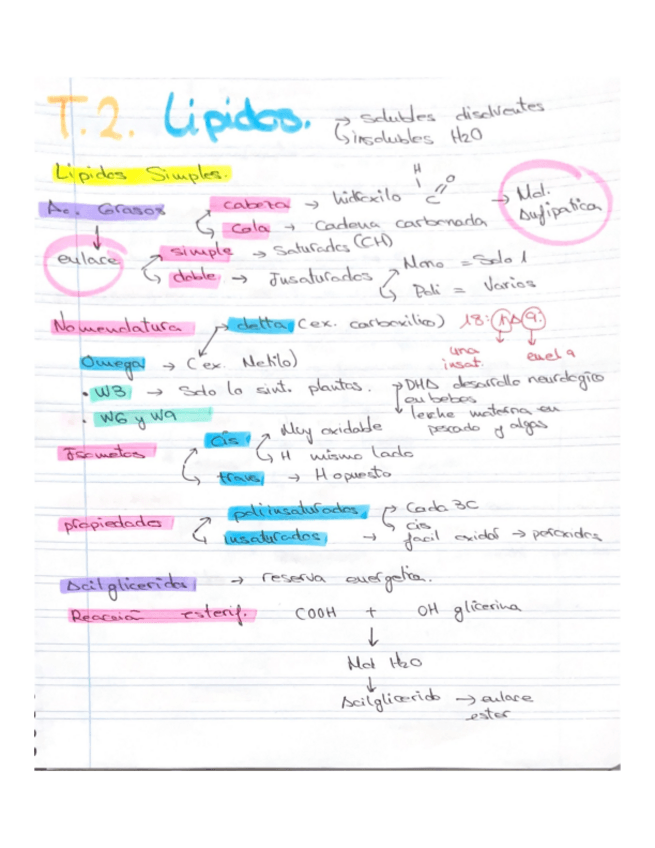 T.2. Lípidos. → solubles disolventes
↳ insolubles H2O
Lípidos Simples.
Ac. Grasos cabeza → hidroxilo H C O → Mol. Anfipatica
cola → Cadena carbonada
enlace simple → Saturados (CH)
doble → Insaturados Mono = Solo 1
Poli = Varios
Nomenclatura → delta (ex. carboxilico) 18:1Δ9:
una insat. en el 9
Omega → (ex. Metilo)
• W3 → Solo lo sint. plantas. → DHA desarrollo neurologico en bebes
• W6 y W9 leche materna en pescado y algas
Isomeros cis Muy oxidable
H mismo lado
trans → H opuesto
propiedades poliinsaturados Cada 3C
cis
insaturados → facil oxidar → peroxidos
Acilgliceridos → reserva energetica.
Reacción esterif. COOH + OH glicerina
↓
Mol H2O
↓
Acilglicerido → enlace ester